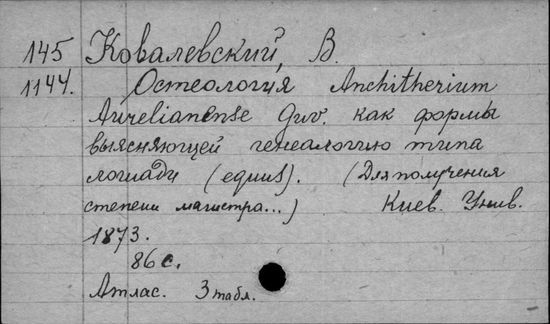 145 Ковалевский, В.
1144. Остеология Anchitherium
Aurelianense Guv. как формы
выясняющей генеалогию типа
лошади (equus). (Для получения
степени магистра...) Киев. Унив.
1873.
86 с.
Атлас. 3 табл.